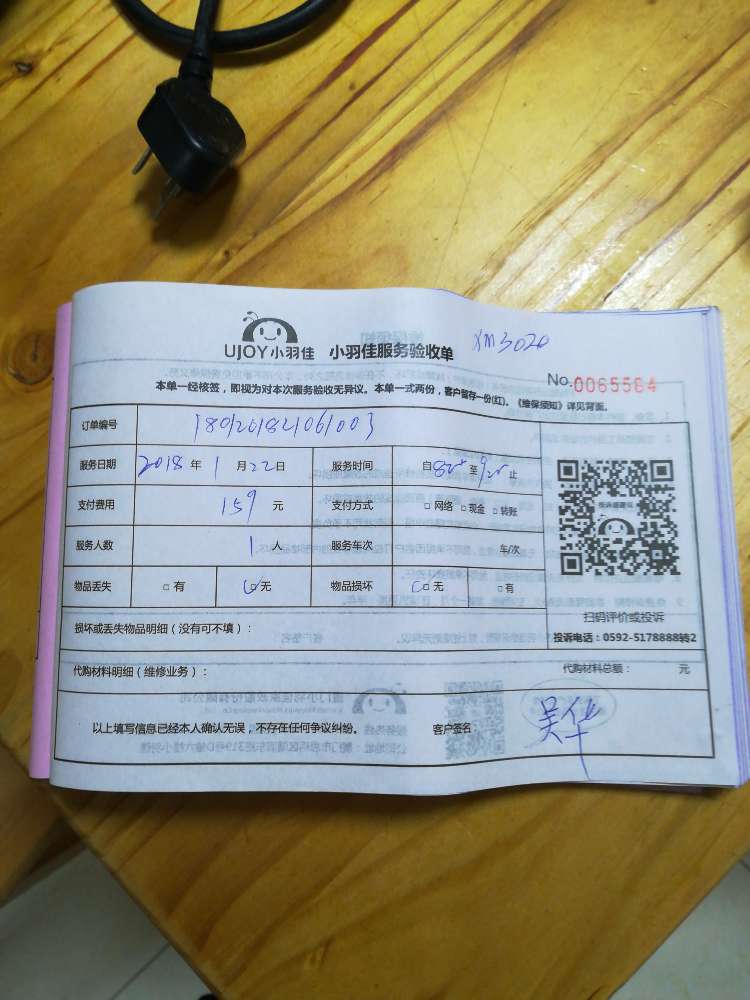 UJOY小羽佳 小羽佳服务验收单 XM3020
No.0065564
本单一经核签，即视为对本次服务验收无异议。本单一式两份，客户留存一份(红)。《维保须知》详见背面。
订单编号
服务日期 2018 年 1 月 22 日 服务时间 自 至 止
支付费用 159 元 支付方式 □ 网络 □ 现金 □ 转账
服务人数 1 人 服务车次 车/次
物品丢失 □ 有 □ 无 物品损坏 □ 无 □ 有
扫码评价或投诉
投诉电话：0592-5178888转2
损坏或丢失物品明细（没有可不填）：
代购材料明细（维修业务）： 代购材料总额： 元
以上填写信息已经本人确认无误，不存在任何争议纠纷。 客户签名： 吴华